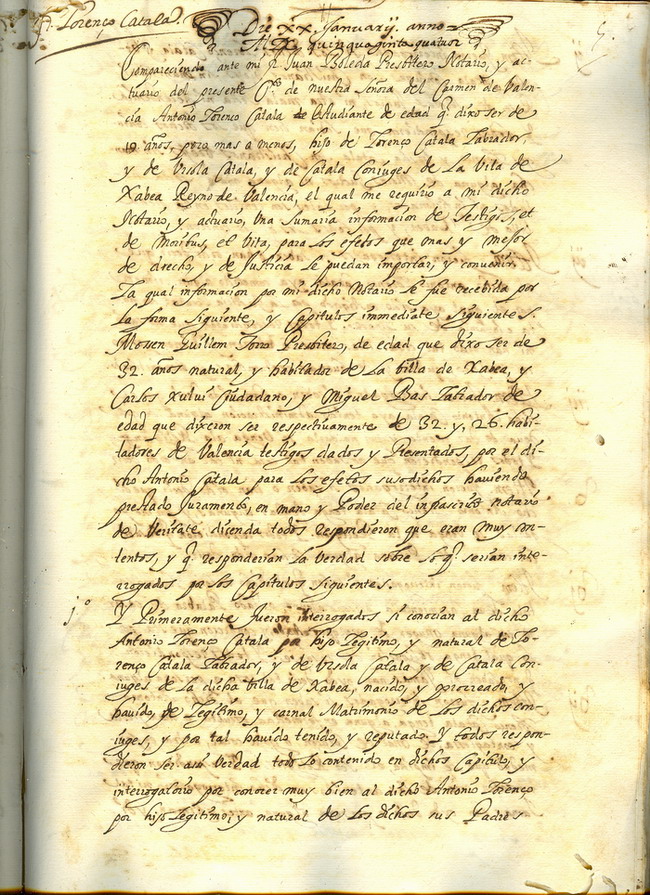 Lorenço Catala.
Die xx. Januarij. anno
M D quinquaginta quatuor
Compareciendo ante mi Juan Boleda Presbitero Notario, y ac-
tuario del presente de nuestra Señora del Carmen de Valen-
cia Antonio Lorenço Catala Estudiante de edad q dixo ser de
19 años, poco mas a menos, hijo de Lorenço Catala Labrador,
y de Ursola Catala, y de Catala Coniuges de La Vila de
Xabea Reyno de Valencia, el qual me requirio a mi dicho
Notario, y actuario, Una sumaria informacion de Testigos, et
de Moribus, et Vita, para Los efetos que mas y mejor
de drecho, y de Justicia Le puedan importar, y convenir.
La qual informacion por mi dicho Notario Le fue recebida por
La forma siguiente, y Capitulos immediate siguientes.
Mossen Guillem Torro Presbitero, de edad que dixo ser de
32. años natural, y habitador de La billa de Xabea, y
Carlos Xulvi Ciudadano, y Miguel Bas Labrador de
edad que dixeron ser respectivamente de 32. y, 26. habi-
tadores de Valencia testigos dados y Presentados, por el di-
cho Antonio Catala para Los efetos susodichos haviendo
prestado Juramento, en mano y Poder del infrascrito notario
de Veritate dicenda todos respondieron que eran muy con-
tentos, y q responderian La verdad sobre Lo q serian inte-
rrogados por Los Capitulos siguientes.
1º Y Primeramente fueron interrogados si conocian al dicho
Antonio Lorenço Catala por hijo Legitimo, y natural de Lo-
renço Catala Labrador, y de Ursola Catala y de Catala Con-
iuges de La dicha billa de Xabea, nacido, y procreado, y
havido, de Legitimo, y carnal Matrimonio de Los dichos con-
iuges, y por tal havido tenido, y reputado. Y todos respon-
dieron ser asi Verdad todo Lo contenido en dichos Capitulo, y
interrogatorio por conocer muy bien al dicho Antonio Lorenço
por hijo Legitimo, y natural de Los dichos sus Padres.